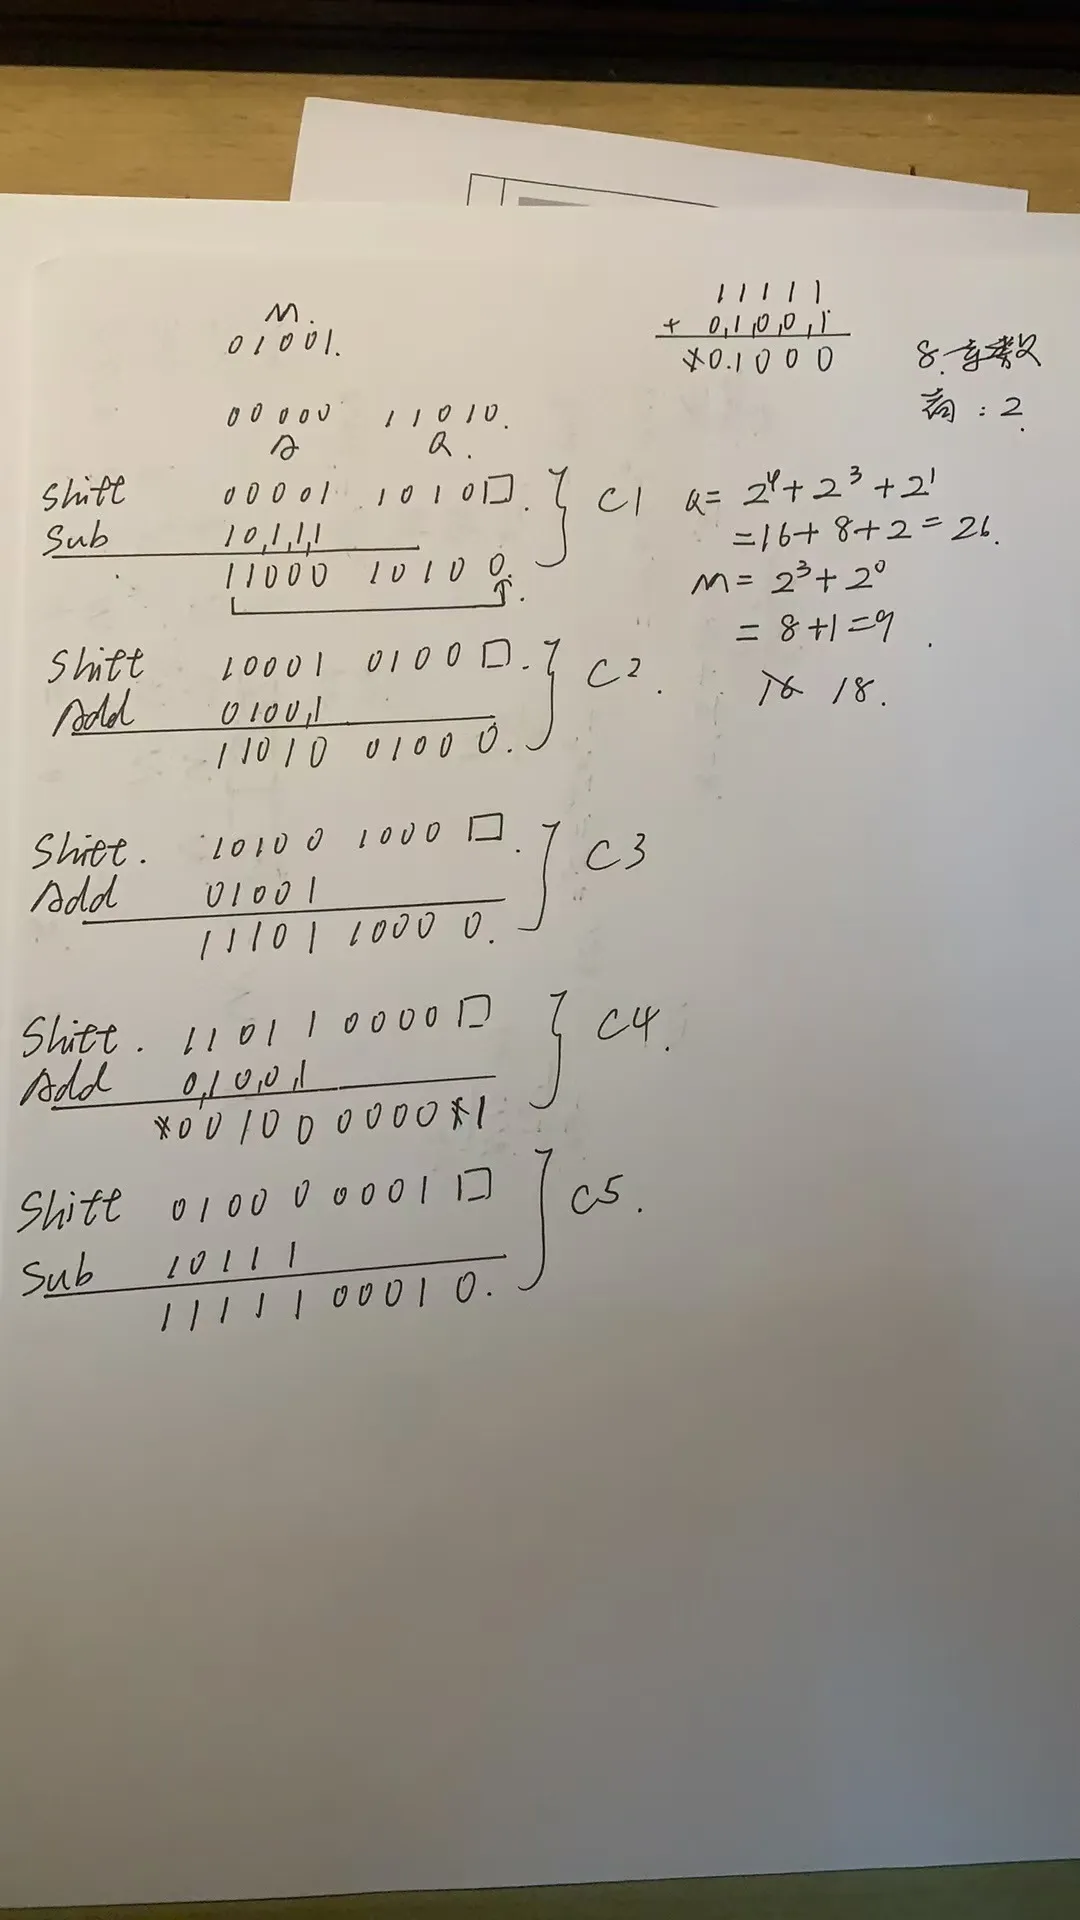 M.
01001.
00000 11010.
A Q.
Shift 00001 1010□. C1
Sub 10111
11000 10100.
Shift 10001 0100□. C2.
Add 01001
11010 01000.
Shift. 10100 1000□. C3
Add 01001
11101 10000.
Shift. 11011 0000□ C4.
Add 01001
*00100 0000*1
Shift 01000 0001□ C5.
Sub 10111
11111 00010.
11111
+ 0,1,0,0,1
*0.1000
8.
商:2.
Q= 2⁴+2³+2¹
=16+8+2=26.
M= 2³+2⁰
= 8+1=9.
18.